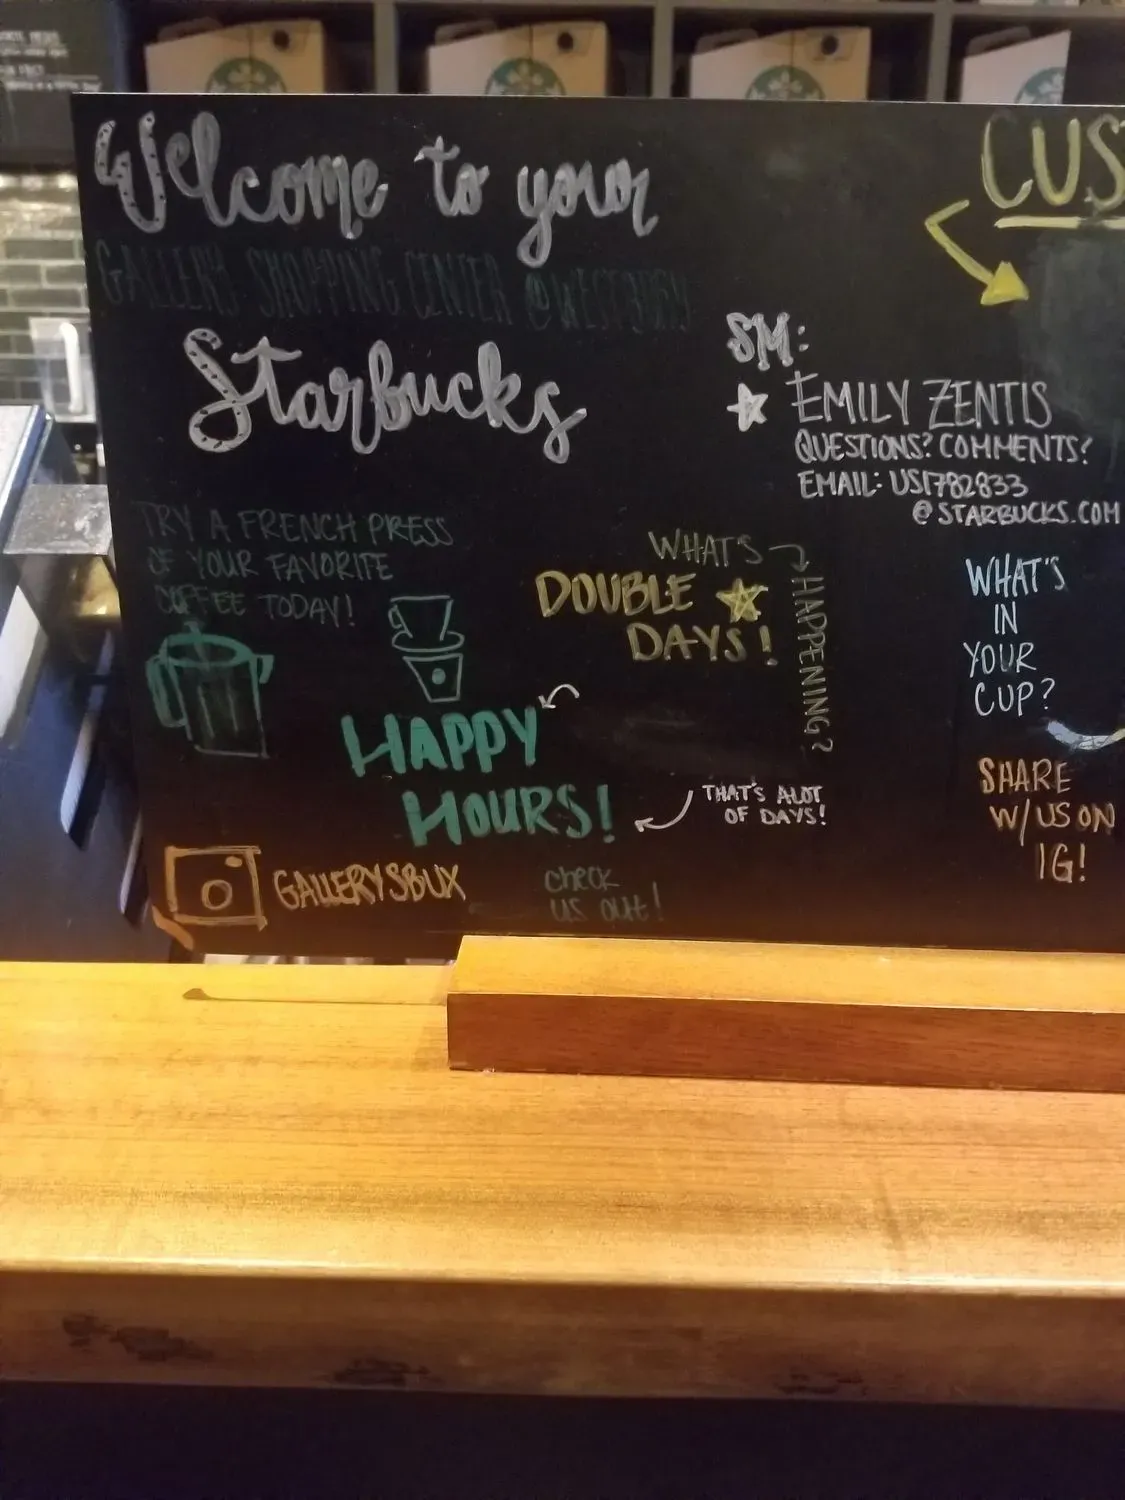 Welcome to your
GALLERY SHOPPING CENTER @WESTBURY
Starbucks
CUS
SM:
EMILY ZENTIS
QUESTIONS? COMMENTS?
EMAIL: US1782833
@STARBUCKS.COM
TRY A FRENCH PRESS
OF YOUR FAVORITE
COFFEE TODAY!
WHAT'S
HAPPENING?
DOUBLE
DAYS!
HAPPY
HOURS!
THAT'S ALOT
OF DAYS!
GALLERYSBUX
check
us out!
WHAT'S
IN
YOUR
CUP?
SHARE
W/US ON
IG!